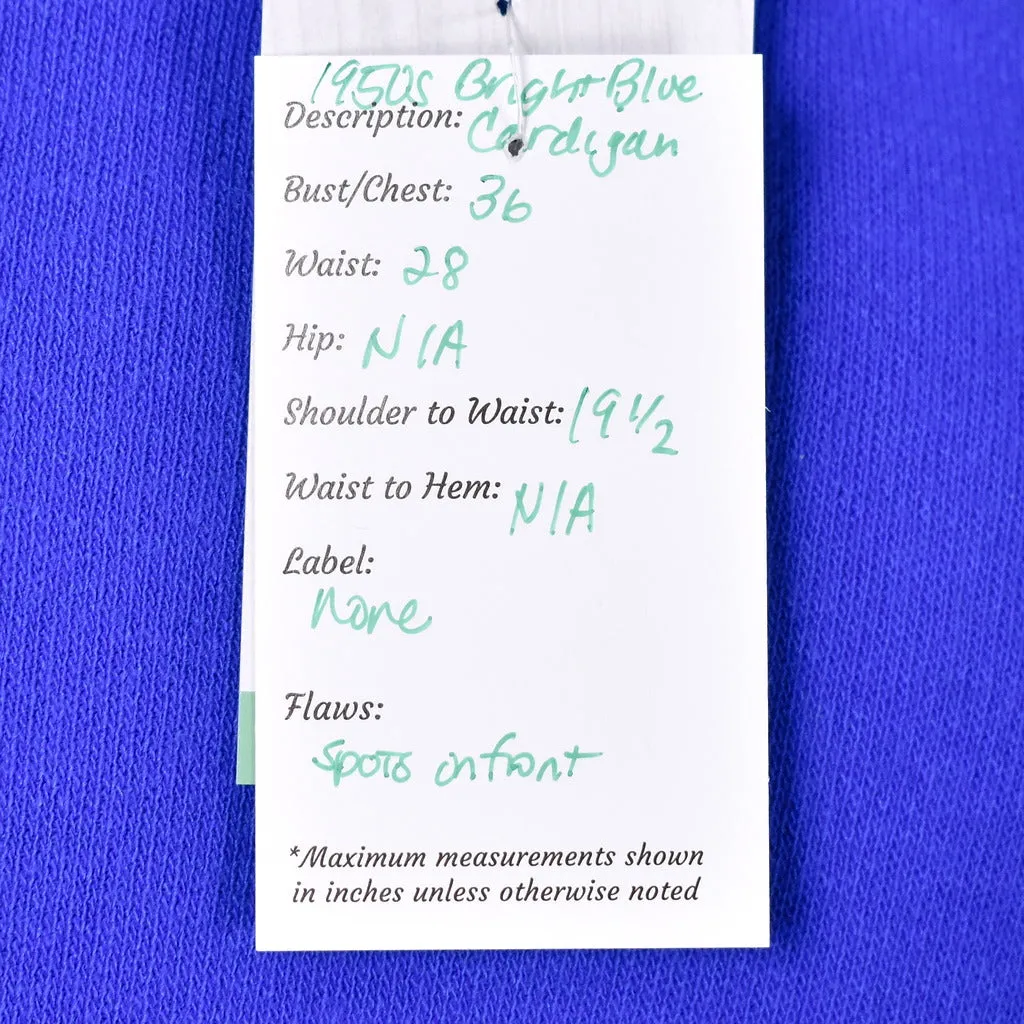 1950s Bright Blue
Description: Cardigan
Bust/Chest: 36
Waist: 28
Hip: N/A
Shoulder to Waist: 19 1/2
Waist to Hem: N/A
Label:
None
Flaws:
Spots on front
*Maximum measurements shown
in inches unless otherwise noted